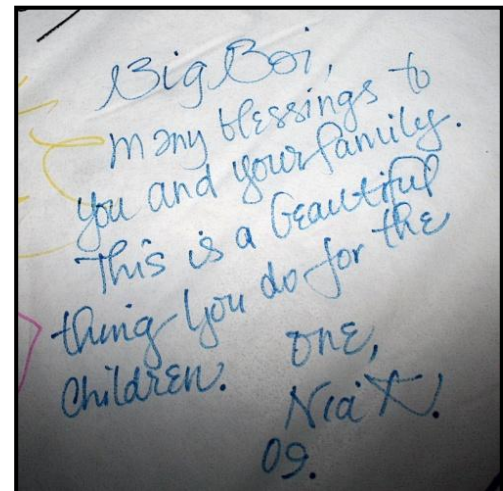 Big Boi,
Many blessings to
you and your family.
This is a beautiful
thing you do for the
Children. One,
Nia X.
09.